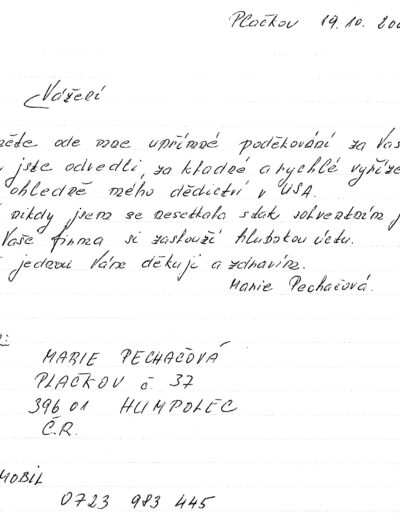 Plačkov 19.10.200
Vážení
ode mne upřímné poděkování za Vaš
jste odvedli, za kladné a rychlé vyříze
ohledně mého dědictví v USA.
nikdy jsem se nesetkala s tak solventním j
Vaše firma si zaslouží hlubokou úctu.
jednou Vám děkuji a zdravím.
Marie Pechačová.
MARIE PECHAČOVÁ
PLAČKOV č. 37
396 01 HUMPOLEC
Č.R.
MOBIL
0723 983 445